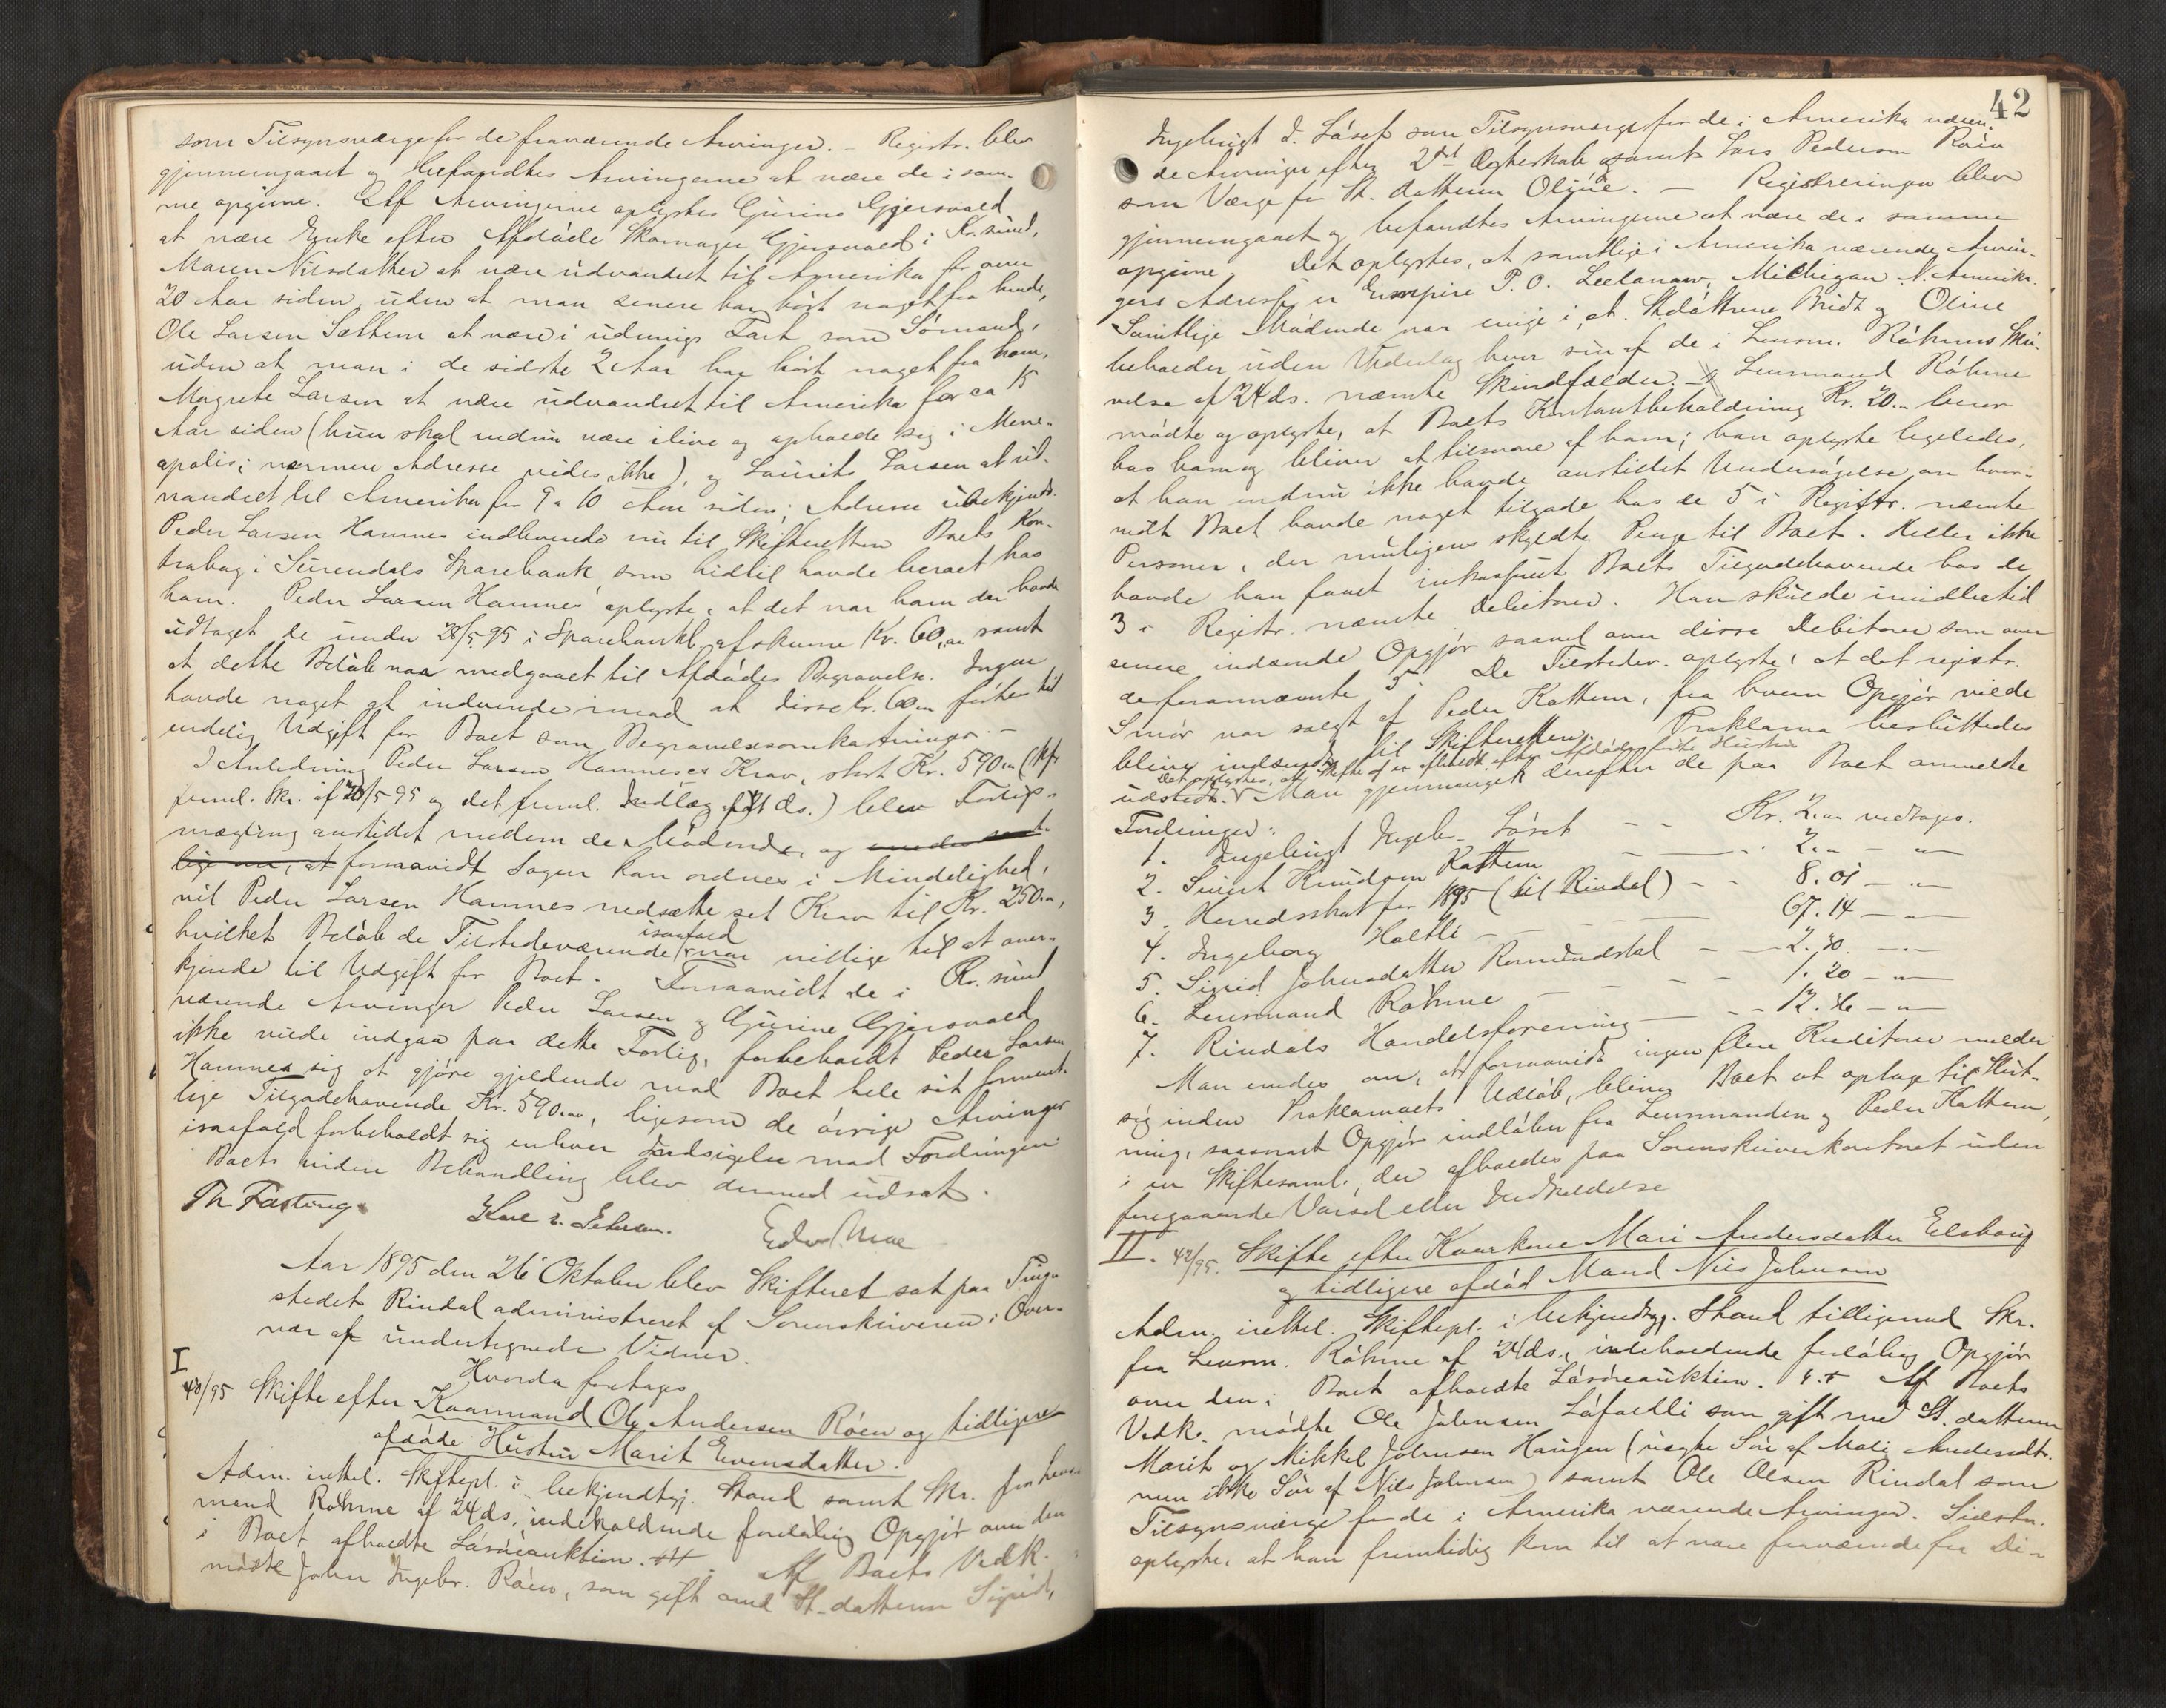 som Tilsynsværge for de fraværende Arvinger. – Registr. blev
gjennemgaaet og befandtes Arvingerne at være de i sam-
me opgivne. Af Arvingerne oplystes Gurine Gjersvold
at være Enke efter Afdøde Skomager Gjersvold i Kr.sund,
Maren Nilsdatter at være udvandret til Amerika for over
20 Aar siden, uden at man senere har hørt noget fra hende,
Ole Larsen Sættem at være i udenrigs Fart som Sømand,
uden at man i de sidste 2 Aar har hørt noget fra ham,
Magrete Larsen at være udvandret til Amerika for ca 15
Aar siden (hun skal endnu være ilive og opholde sig i Mene-
apolis; nærmere Adresse vides ikke), og Laurits Larsen at ud-
vandret til Amerika for 9 a 10 Aar siden; Adresse ubekjendt.
Peder Larsen Hamnes indleverede nu til Skifteretten Boets Kon-
trabog i Surendals Sparebank som hidtil havde beroet hos
ham. Peder Larsen Hamnes oplyste, at det var ham der havde
udtaget de under 28/5 95 i Sparebankb. afskrevne Kr. 60,00 samt
at dette Beløb var medgaaet til Afdødes Begravelse. Ingen
havde noget at indvende imod at disse Kr. 60,00 førtes til
endelig Udgift for Boet som Begravelsesomkostninger. –
I Anledning Peder Larsen Hamneses Krav, stort Kr. 590,00 (Kfr
freml. Skr. af 20/5 95 og det freml. Indlæg af 21 ds.) blev Forligs-
mægling anstillet mellem de Mødende, og enedes samt-
lige om, at forsaavidt Sagen kan ordnes i Mindelighed,
vil Peder Larsen Hamnes nedsætte set Krav til Kr. 250,00,
isaafald
hvilket Beløb de Tilstedeværende var villige til at aner-
kjende til Udgift for Boet. Forsaavidt de i Kr.sund
værende Arvinger Peder Larsen og Gurine Gjersvold
ikke vilde indgaa paa dette Forlig, forbeholdt Peder Larsen
Hamnes sig at gjøre gjeldende mod Boet hele sit forment-
lige Tilgodehavende Kr. 590,00, ligesom de øvrige Arvinger
isaafald forbeholdt sig enhver Indsigelse mod Fordringen
Boets videre Behandling blev dermed udsat.
Th. Fasting.
Edv. Moe
Aar 1895 den 26 Oktober blev Skifteret sat paa Tinge
stedet Rindal administreret af Sorenskriveren i Over-
vær af undertegnede Vidner.
Hvorda foretages
I
40/95 Skifte efter Kaarmand Ole Andersen Røen og tidligere
afdøde Hustru Marit Evensdatter.
Adm. irettel. Skiftepl. i bekjendtgj. Stand samt Skr. fra Lens-
mand Røhme af 24 ds. indeholdende foreløbig Opgjør over den
i Boet afholdte Løsøreauktion. Af Boets Vedk.
mødte John Ingebr. Røen, som gift med St-datteren Sigrid,
42
Ingebrigt I. Løset som Tilsynsværge for de i Amerika væren-
de Arvinger efter 2det Ægteskab samt Lars Pedersen Røen
som Værge for St. datteren Oline. – Registreringen blev
gjennemgaaet og befandtes Arvingerne at være de i samme
opgivne. Det oplystes, at samtlige i Amerika værende Arvin-
gers Adresse er Empire P.O. Leelanaw, Michigan N. Amerika.
Samtlige Mødende var enige i, at Stdøttrene Bridt og Oline
beholder uden Vederlag hver sin af de i Lensm. Røhmes Skri-
velse af 24 ds. nævnte Skindfælder. – Lensmand Røhme
mødte og oplyste, at Boets Kontantbeholdning Kr. 20.00 beror
hos ham og bliver at tilsvare af ham; han oplyste ligeledes,
at han endnu ikke havde anstillet Undersøgelse om hvor-
vidt Boet havde noget tilgode hos de 5 i Registr. nævnte
Personer, der muligens skyldte Penge til Boet. Heller ikke
havde han faaet inkasseret Boets Tilgodehavende hos de
3 i Registr. nævnte Debitorer. Han skulde imidlertid
senere indsende Opgjør saavel over disse Debitorer som over
de forannævnte 5. De Tilstedev. oplyste, at det registr.
Smør var solgt af Peder Kattem, fra hvem Opgjør vilde
blive indsendt til Skifteretten. Proklama besluttedes
Det oplystes, at Skifte er afholdt efter Afdødes første Hustru
udstedt. Man gjennemgik derefter de paa Boet anmeldte
Fordringer:
1. Ingebrigt Ingebr. Løset – – Kr. 2.00 vedtages.
2. Sivert Knudsen Kattem – – 2.00 – „ –
3. Herredsskat for 1895 (til Rindal) – – 8.01 – „ –
4. Ingeborg Holtli – – 67.14 – „ –
5. Sigrid Johnsdatter Romundstad – – 2.70 – „ –
6. Lensmand Røhme – – 1.20 – „ –
7. Rindals Handelsforening – – 12.46 – „ –
Man enedes om, at forsaavidt ingen flere Kreditorer melder
sig inden Proklamaets Udløb, bliver Boet at optage til Slut-
ning, saasnart Opgjør indløber fra Lensmanden og Peder Kattem,
i en Skiftesaml. der afholdes paa Sorenskriverkontoret uden
foregaaende Varsel eller Indkaldelse
II. 42/95. Skifte efter Kaarkone Mari Andersdatter Elshaug
og tidligere afdød Mand Nils Johnsen
Adm. irettel. Skiftepl. i bekjendtgj. Stand tilligemed Skr.
fra Lensm. Røhme af 24 ds., indeholdende foreløbig Opgjør
over den i Boet afholdte Løsøreauktion. Af Boets
Vedk. mødte Ole Johnsen Løfaldli som gift med St. datteren
Marit og Mikkel Johnsen Haugen (uægte Søn af Mari Andersdtr.
men ikke Søn af Nils Johnsen) samt Ole Olsen Rindal som
Tilsynsværge for de i Amerika værende Arvinger. Sidstn.
oplyste, at han fremtidig kom til at være fraværende fra Di-